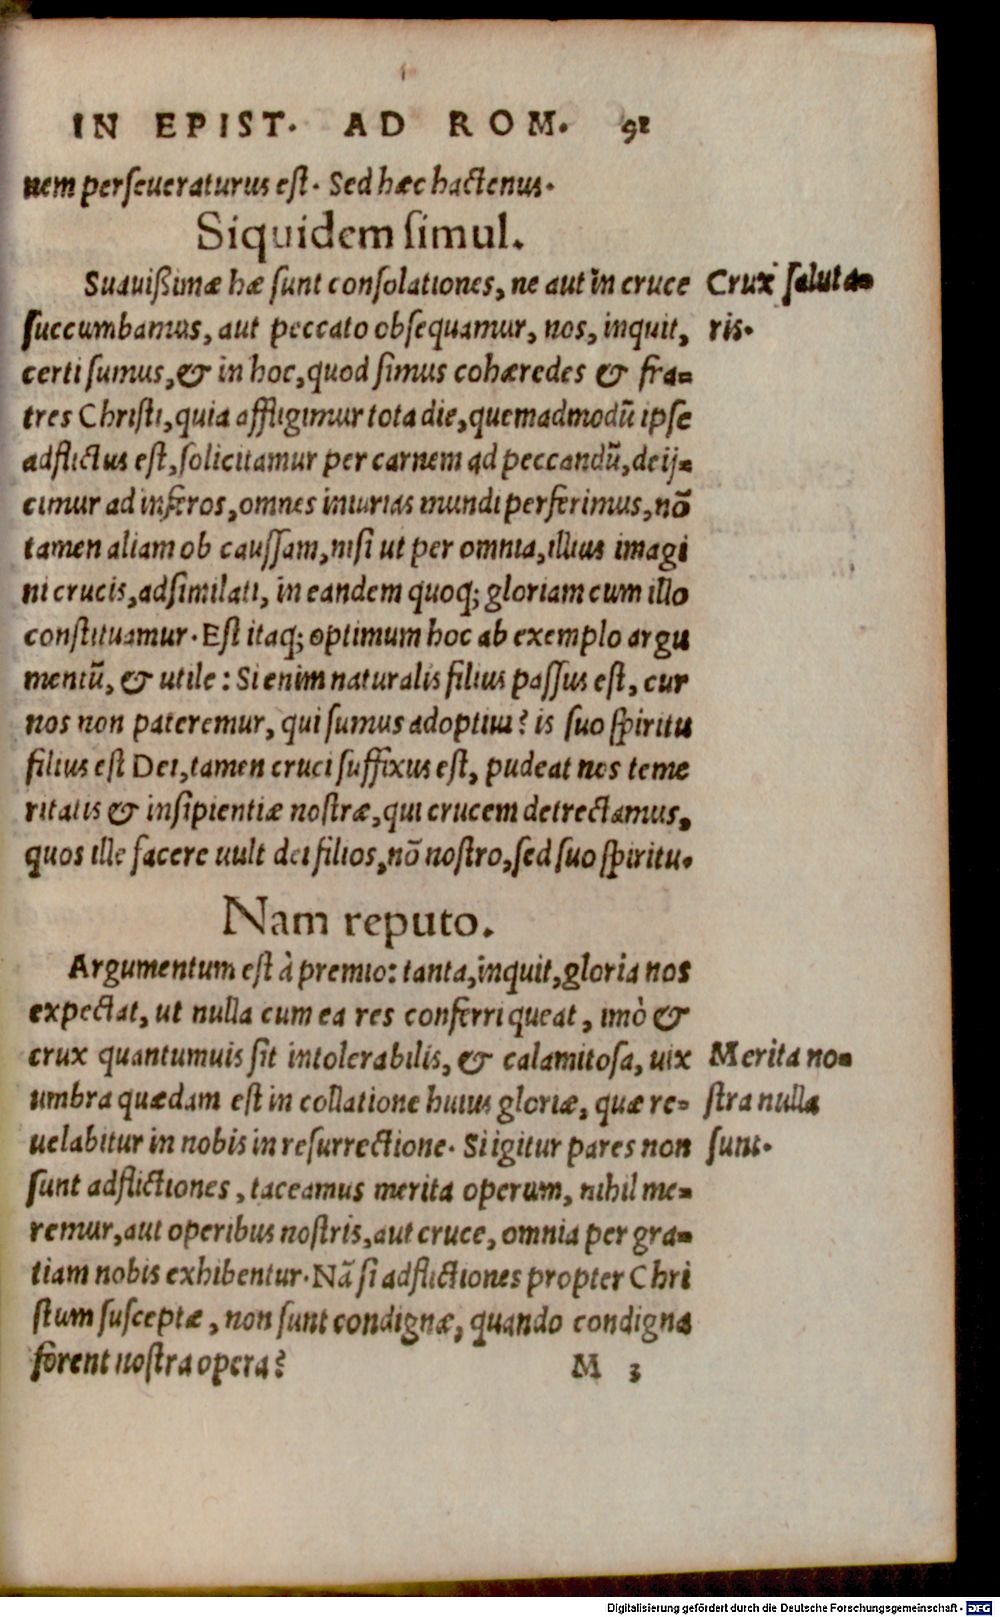 IN EPIST. AD ROM. 91
nem perſeueraturus eſt. Sed hæc hactenus.
Siquidem ſimul.
Suauißimæ hæ ſunt conſolationes, ne aut in cruce
ſuccumbamus, aut peccato obſequamur, nos, inquit,
certi ſumus, & in hoc, quod ſimus cohæredes & fra-
tres Chriſti, quia affligimur tota die, quemadmodũ ipſe
adflictus eſt, ſolicitamur per carnem ad peccandũ, deij-
cimur ad inferos, omnes iniurias mundi perferimus, nõ
tamen aliam ob cauſſam, niſi ut per omnia, illius imagi
ni crucis, adſimilati, in eandem quoq; gloriam cum illo
conſtituamur. Eſt itaq; optimum hoc ab exemplo argu
mentũ, & utile: Si enim naturalis filius paſſus eſt, cur
nos non pateremur, qui ſumus adoptiui? is ſuo ſpiritu
filius eſt Dei, tamen cruci ſuffixus eſt, pudeat nos teme
ritatis & inſipientiæ noſtræ, qui crucem detrectamus,
quos ille facere uult dei filios, nõ noſtro, ſed ſuo ſpiritu.
Crux ſaluta-
ris.
Nam reputo.
Argumentum eſt à premio: tanta, inquit, gloria nos
expectat, ut nulla cum ea res conferri queat, imò &
crux quantumuis ſit intolerabilis, & calamitoſa, uix
umbra quædam eſt in collatione huius gloriæ, quæ re-
uelabitur in nobis in reſurrectione. Si igitur pares non
ſunt adflictiones, taceamus merita operum, nihil me-
remur, aut operibus noſtris, aut cruce, omnia per gra-
tiam nobis exhibentur. Nã ſi adflictiones propter Chri
ſtum ſuſceptæ, non ſunt condignæ, quando condigna
forent noſtra opera?
Merita no-
ſtra nulla
ſunt.
M 3
Digitalisierung gefördert durch die Deutsche Forschungsgemeinschaft - DFG